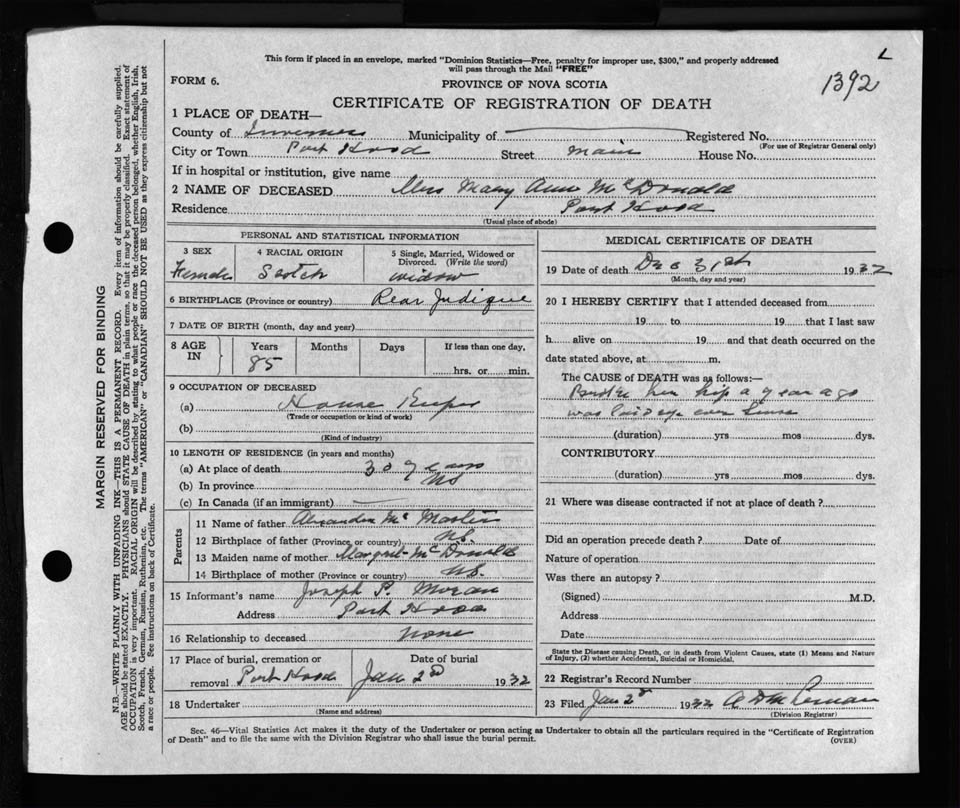 This form if placed in an envelope, marked "Dominion Statistics—Free, penalty for improper use, $300," and properly addressed
will pass through the Mail "FREE"
L
1392
FORM 6.
PROVINCE OF NOVA SCOTIA
CERTIFICATE OF REGISTRATION OF DEATH
1 PLACE OF DEATH—
County of Inverness Municipality of Registered No.
(For use of Registrar General only)
City or Town Port Hood Street Main House No.
If in hospital or institution, give name
2 NAME OF DECEASED Mrs Mary Ann McDonald
Residence Port Hood
(Usual place of abode)
PERSONAL AND STATISTICAL INFORMATION
3 SEX
Female
4 RACIAL ORIGIN
Scotch
5 Single, Married, Widowed or
Divorced. (Write the word)
widow
6 BIRTHPLACE (Province or country) Rear Judique
7 DATE OF BIRTH (month, day and year)
8 AGE
IN
Years Months Days If less than one day.
85 hrs. or min.
9 OCCUPATION OF DECEASED
(a) House Keeper
(Trade or occupation or kind of work)
(b)
(Kind of industry)
10 LENGTH OF RESIDENCE (in years and months)
(a) At place of death 30 years
(b) In province NS
(c) In Canada (if an immigrant)
Parents
11 Name of father Alexander Mc Master
12 Birthplace of father (Province or country) NS.
13 Maiden name of mother Margret McDonald
14 Birthplace of mother (Province or country) NS.
15 Informant's name Joseph P. Moran
Address Port Hood
16 Relationship to deceased None
17 Place of burial, cremation or
removal Port Hood
Date of burial
Jan 2d 1932
18 Undertaker
(Name and address)
MEDICAL CERTIFICATE OF DEATH
19 Date of death Dec 31st 1932
(Month, day and year)
20 I HEREBY CERTIFY that I attended deceased from
19 to 19 that I last saw
h alive on 19 and that death occurred on the
date stated above, at m.
The CAUSE of DEATH was as follows:—
Broke her hip a year ago
was laid up ever since
(duration) yrs mos dys.
CONTRIBUTORY
(duration) yrs mos dys.
21 Where was disease contracted if not at place of death?
Did an operation precede death? Date of
Nature of operation
Was there an autopsy?
(Signed) M.D.
Address
Date
State the Disease causing Death, or in death from Violent Causes, state (1) Means and Nature
of Injury, (2) whether Accidental, Suicidal or Homicidal.
22 Registrar's Record Number
23 Filed Jan 2d 1932 A D
(Division Registrar)
Sec. 46—Vital Statistics Act makes it the duty of the Undertaker or person acting as Undertaker to obtain all the particulars required in the "Certificate of Registration
of Death" and to file the same with the Division Registrar who shall issue the burial permit.
(OVER)
MARGIN RESERVED FOR BINDING
N.B.—WRITE PLAINLY WITH UNFADING INK—THIS IS A PERMANENT RECORD. Every item of information should be carefully supplied.
AGE should be stated EXACTLY. PHYSICIANS should STATE CAUSE OF DEATH in plain terms, so that it may be properly classified. Exact statement of
OCCUPATION is very important. RACIAL ORIGIN will be described by stating to what people or race the deceased person belonged, whether English, Irish,
Scotch, French, German, Russian, Ruthenian, etc. The terms "AMERICAN" or "CANADIAN" SHOULD NOT BE USED as they express citizenship but not
a race or people. See instructions on back of Certificate.